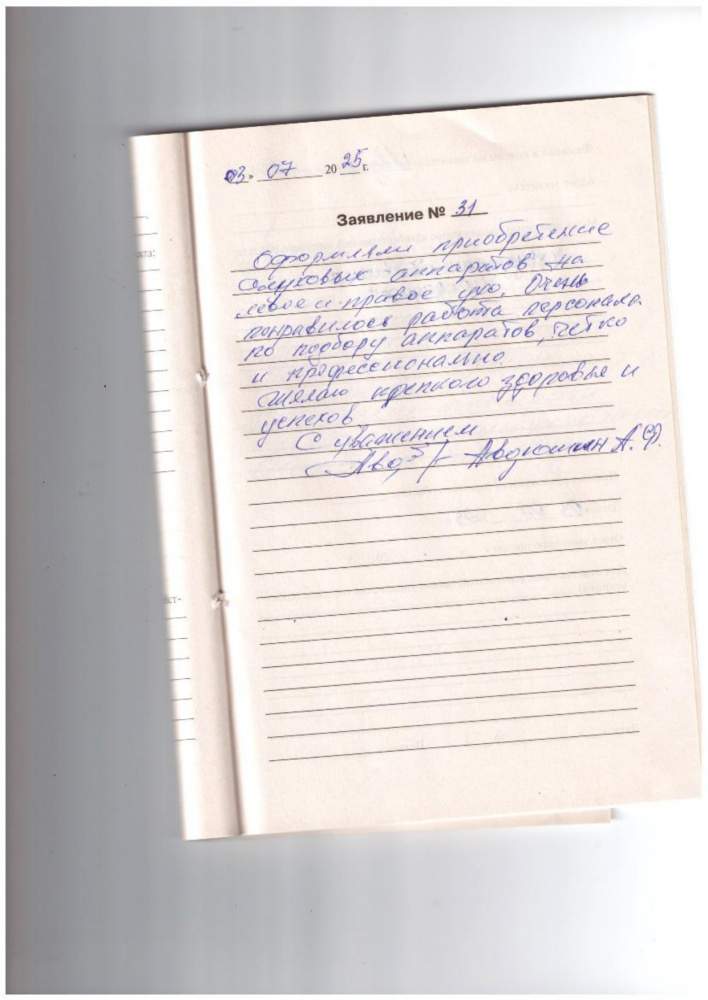 03 » 07 2025 г.
Заявление № 31
Оформляли приобретение
слуховых аппаратов на
левое и правое ухо. Очень
понравилось работа персонала
по подбору аппаратов, четко
и профессионально.
Желаю крепкого здоровья и
успехов
С уважением
Авдюшкин А.Ф.